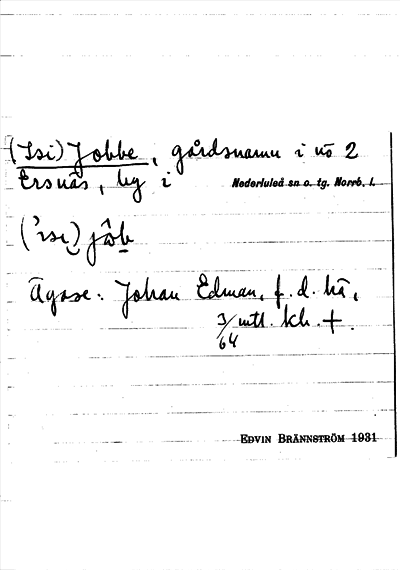 (Isi) Jobbe, gårdsnamn i nö 2
Ersnäs, by i Nederluleå sn o. tg. Norrb. l.
('ɪsɪ) jôb
Ägare: Johan Edman, f. d. hä,
3/64 mtl. kh. +.
EDVIN BRÄNNSTRÖM 1931